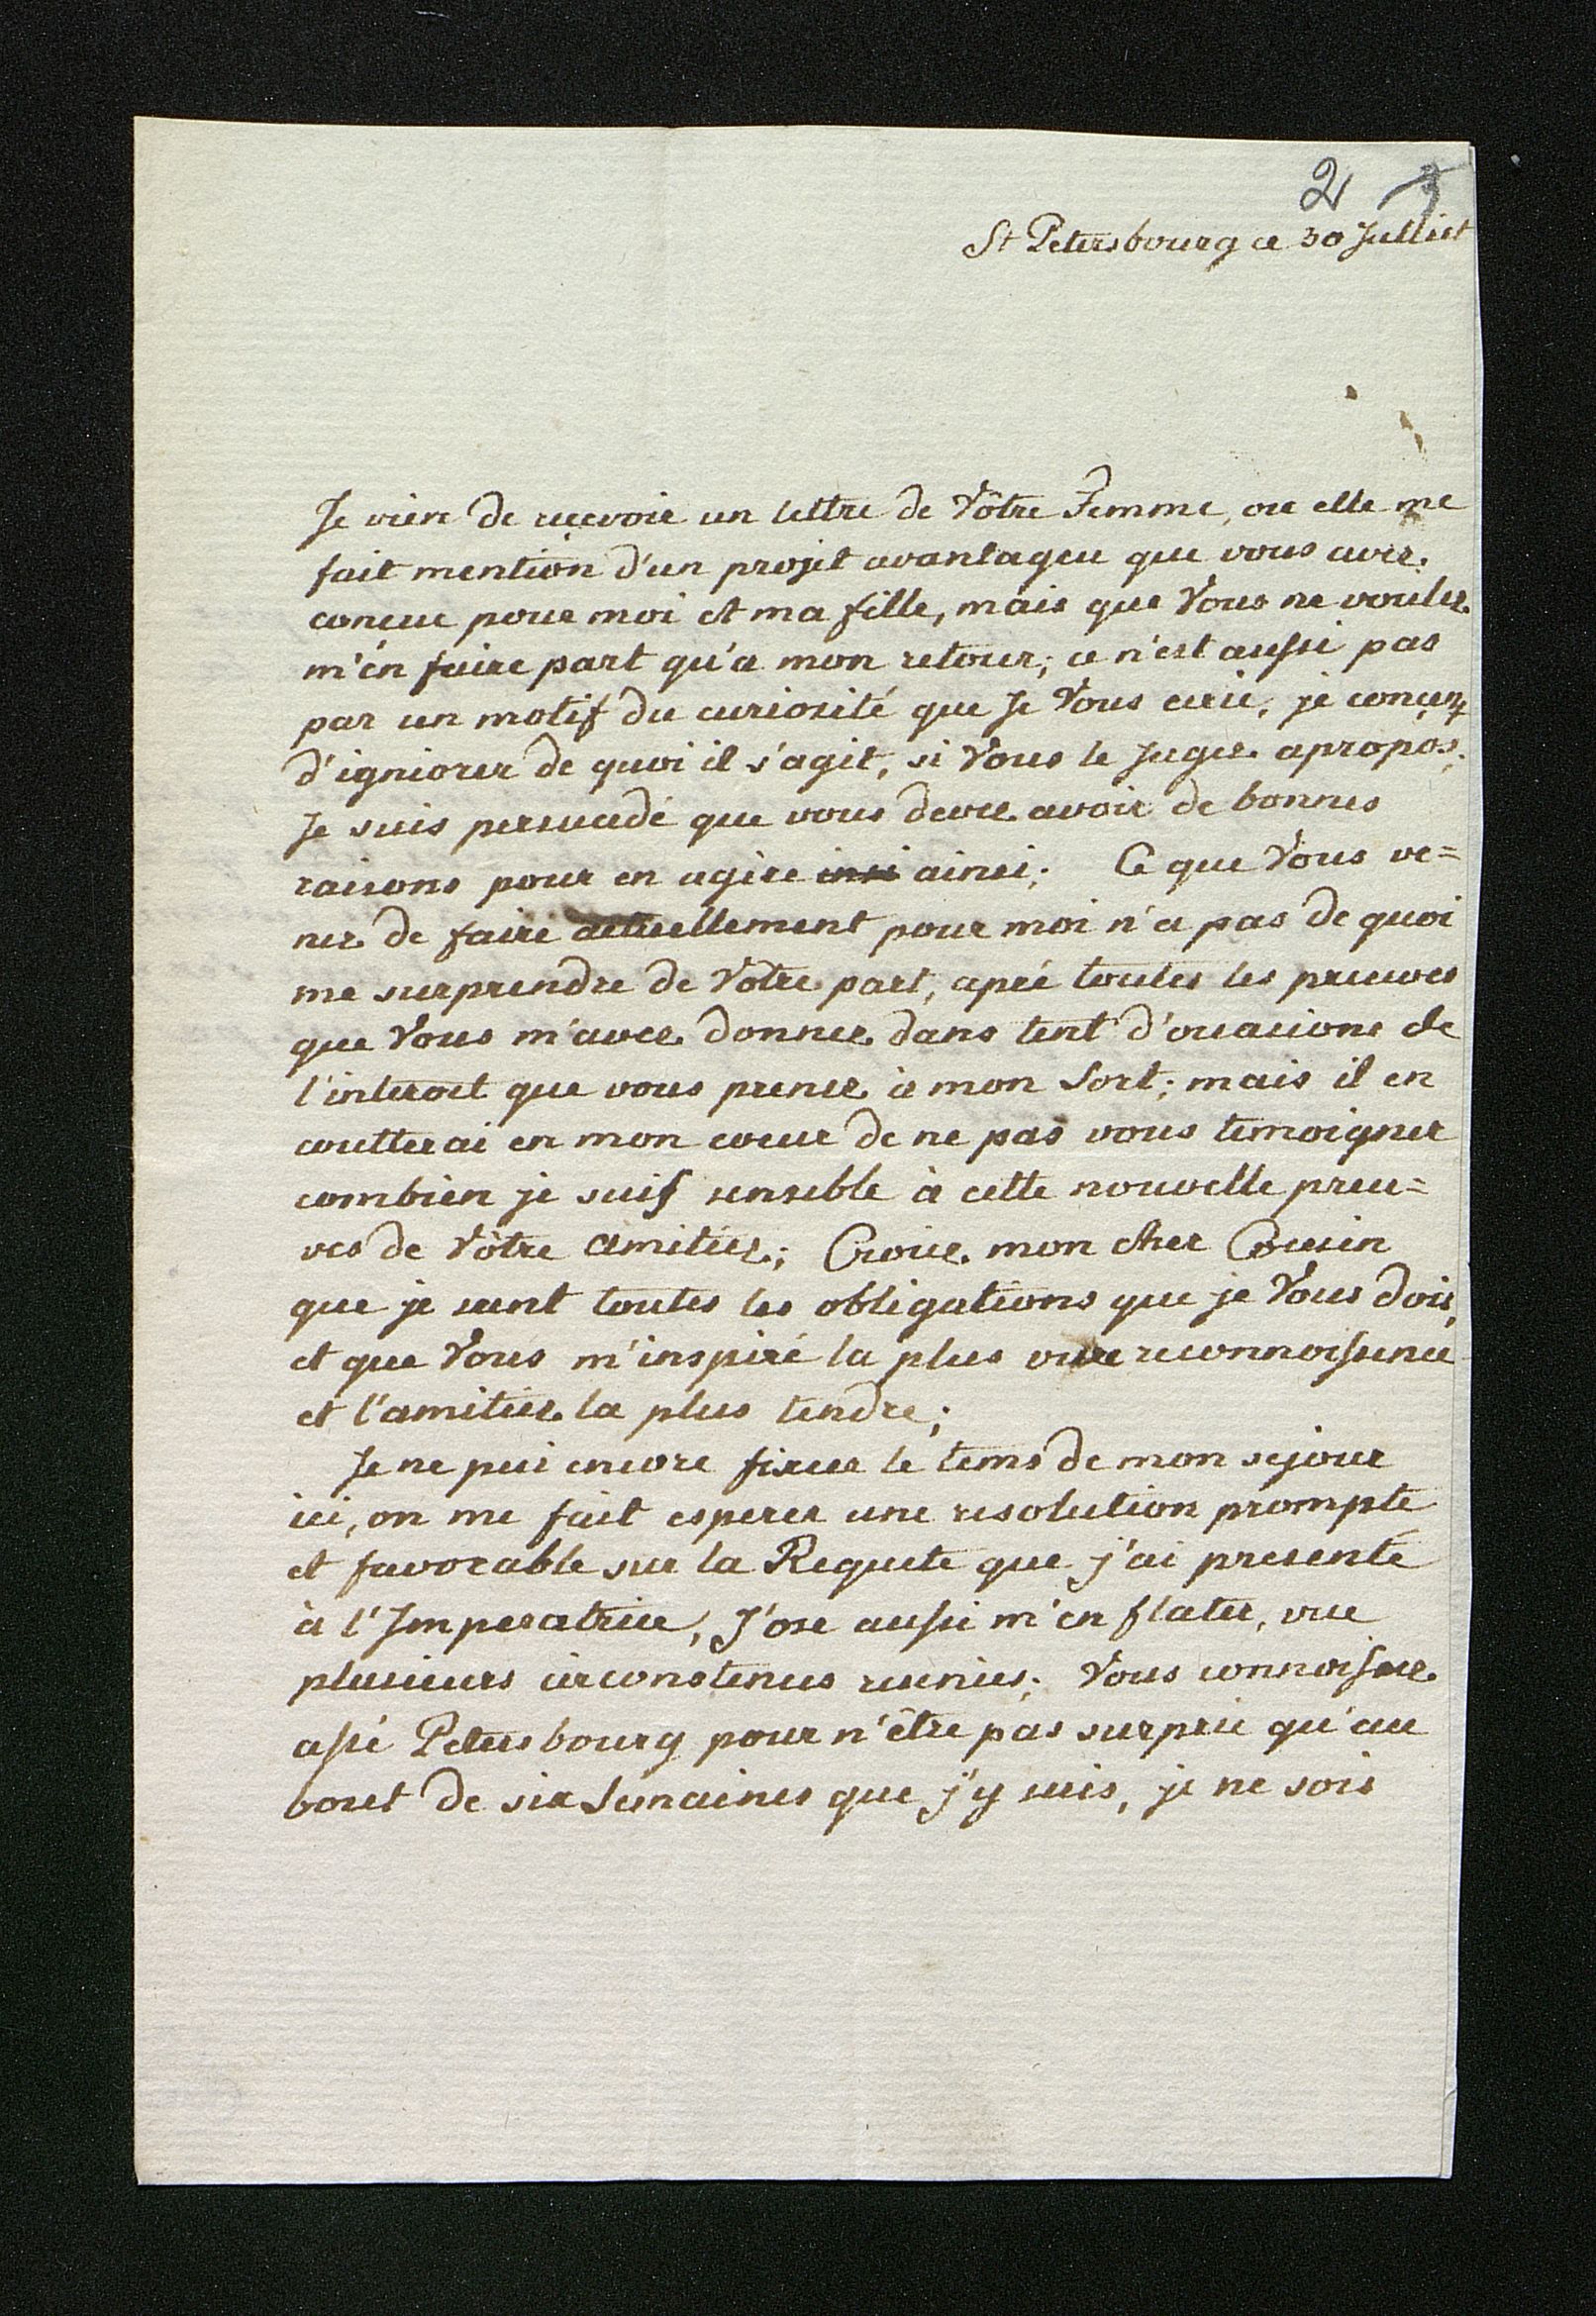 2 3
St Petersbourg ce 30 Julliet
Je vien de recevoir un lettre de Vôtre Femme, ou elle me
fait mention d'un projet avantageu que vous avez.
conçue pour moi et ma fille, mais que Vous ne voulez.
m'en faire part qu'a mon retour; ce n'est aussi pas
par un motif du curiosité que Je Vous ecrie, je
d'igniorer de quoi il s'agit, si Vous le Jugez. apropos;
Je suis persuadé que vous devez avoir de bonnes
raisons pour en agire insi ainsi; Ce que Vous ve=
nez de faire actuellement pour moi n'a pas de quoi
me surprendre de Vôtre part, aprè toutes les preuves
que Vous m'avez donnez dans tent d'ocasions de
l'interoet que vous prenez à mon Sort; mais il en
coutterai en mon coeur de ne pas vous temoigner
combien je suis sensible à cette nouvelle preu=
ves de Vôtre amitiez; Croiez. mon cher Cousin
que je sent toutes les obligations que je Vous dois,
et que Vous m'inspiré la plus vive reconnoissence
et l'amitiez la plus tendre;
Je ne pui encore fixer le tems de mon sejour
ici, on me fait esperer une resolution prompte
et favorable sur la Requete que j'ai presenté
à l'Imperatrice, J'ose aussi m'en flater, vue
plusieurs circonstences reunies; Vous connoissez.
assé Petersbourg pour n'être pas surprie qu'au
bout de six Semaines que j'y suis, je ne sois